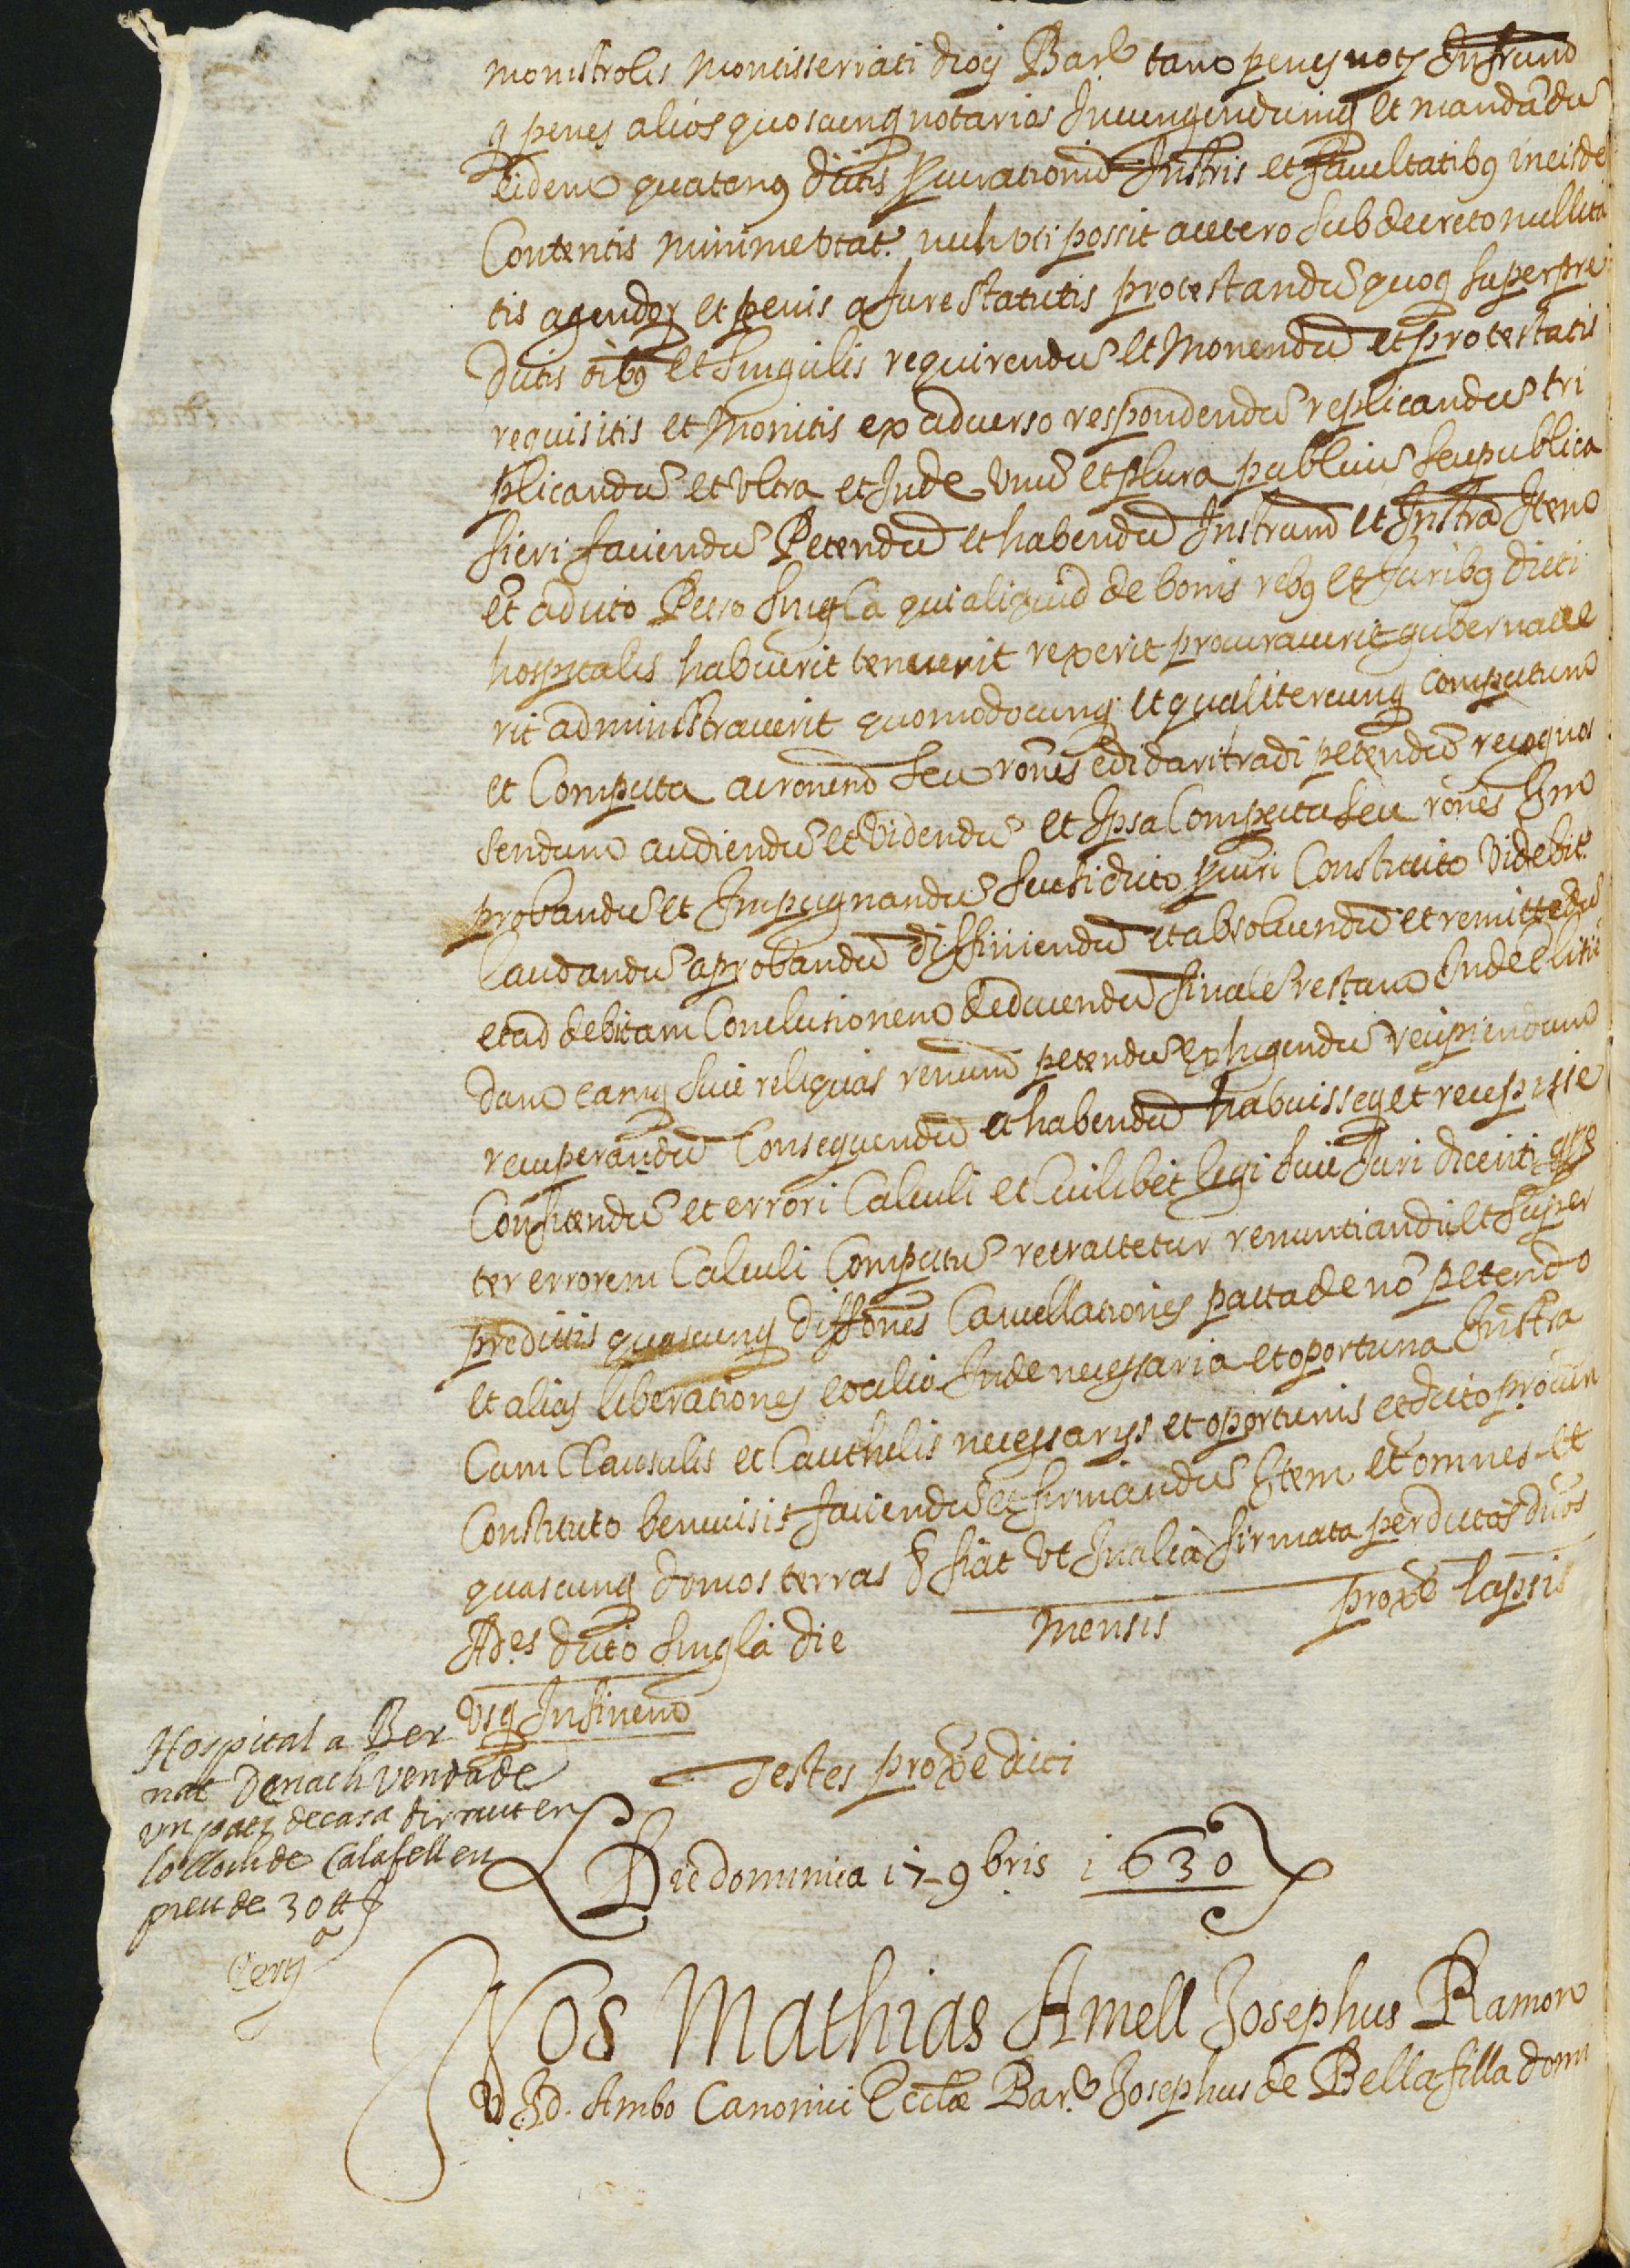 monistrolis montisserrati diocs Bar.e tam penes nots Infrum
q penes alios quoscunq notarios Iniungendumq et mandādū
eidem quatenq dictis procurationū Instris et facultatibq ineisdē
Contentis minime vtat. nech vti possit ac etero sub decreto nullita
tis agendor et penis a Iure statutis protestandū quoq super pre
dictis oibq et singulis requirendū et monendū et protestatis
requisitis et monitis ex aduerso respondendū replicandū tri
plicandū et vltra et Inde vnū et plura publicū seu publica
fieri faciendū Petendū et habendū Instrumū et Instra Item
et a dicto Petro singla qui aliquid de bonis rebq et Iuribq dicti
hospitalis habuerit tenuerit rexerit procurauerit gubernaue
rit administrauerit quomodocunq et qualitercunq computum
et Computa ac ronem seu rones edi dari tradi petendū recognos
cendum audiendū et videndū et Ipsa Computa seu rones Im
probandū et Impugnandū seu si dicto procuri Constituto videbit.
laudandū aprobandū diffiniendū et absoluendū et remittēdū
et ad debitam Conclusionem deducendū finalē restam Inde elitiē
dam eamq siue reliquas renum petendū exhigendū recipiendum
recuperandū Consequendū et habendū habuisseq et recepisse
Confitendū et errori Calculi et Cuilibet legi siue Iuri dicenti prop
ter errorem Calculi Computū retractetur renuntiandū et super
predictis quascunq diffones Cancellationes pacta de nō petendo
et alias liberationes et alia Inde necessaria et oportuna Instra
Cum Clausulis et Cauthelis necessarijs et oportunis et dicto procur
Constituto benuisis faciendū et firmandū Item et omnes et
quascunq domos terras &amp; fiat vt In alia firmata per dictos dnos
Ad.es dicto singla die mensis proxe lapsis
vsq In finem
Testes proxe dicti
Hospital a Ber
nat Danach venda de
vn pati de casa dirruit en
lo lloch de Calafell en
preu de 30 tt
Certj
Die dominica 17 9bris 1630
Nos Mathias Amell Josephus Ramon
V. J. d. Ambo Canonici Ecclæ Bar.e Josephus de Bellafilla domi